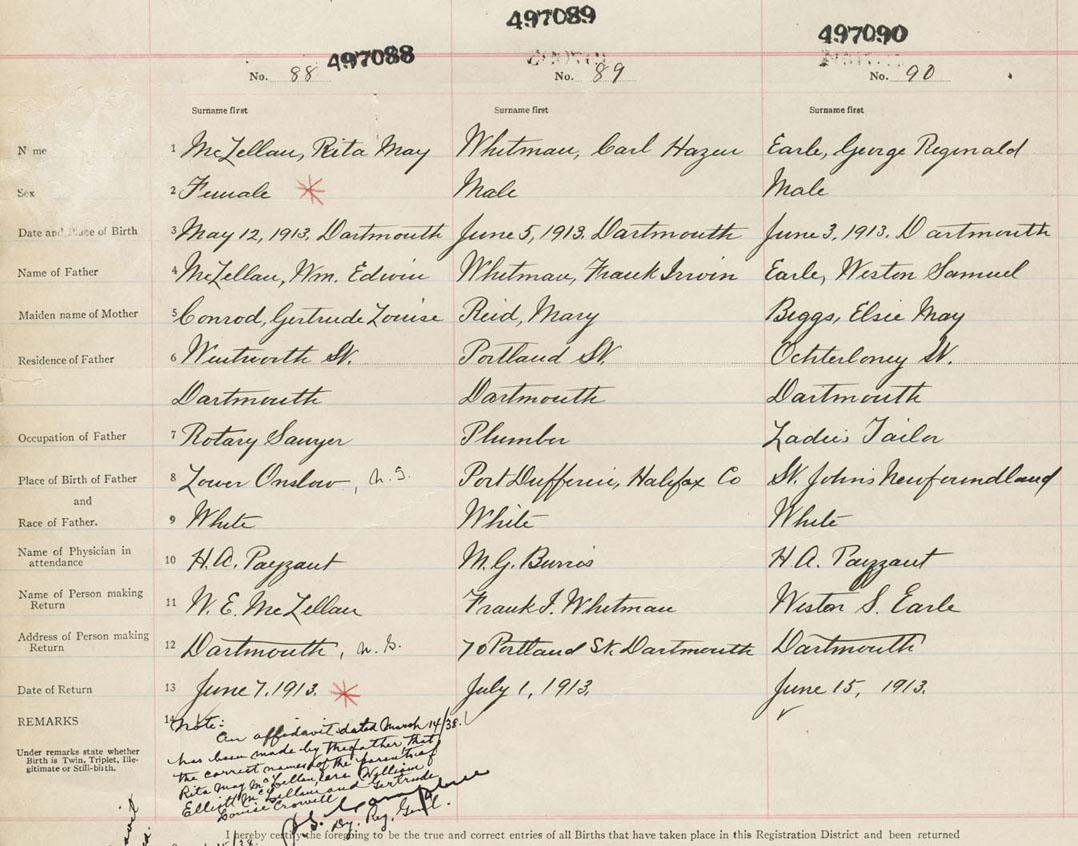 497088 497089 497090
No. 88 No. 89 No. 90
Surname first Surname first Surname first
N me 1 McLellan, Rita May Whitman, Carl Hazen Earle, George Reginald
Sex 2 Female * Male Male
Date and Place of Birth 3 May 12, 1913. Dartmouth June 5, 1913. Dartmouth June 3, 1913. Dartmouth
Name of Father 4 McLellan, Wm. Edwin Whitman, Frank Irvin Earle, Weston Samuel
Maiden name of Mother 5 Conrod, Gertrude Louise Reid, Mary Beggs, Elsie May
Residence of Father 6 Wentworth St. Portland St. Ochterloney St.
Dartmouth Dartmouth Dartmouth
Occupation of Father 7 Rotary Sawyer Plumber Ladies Tailor
Place of Birth of Father 8 Lower Onslow, N.S. Port Dufferin, Halifax Co St. Johns Newfoundland
and
Race of Father. 9 White White White
Name of Physician in attendance 10 H.A. Payzant M.G. Burris H.A. Payzant
Name of Person making Return 11 W. E. McLellan Frank I. Whitman Weston S. Earle
Address of Person making Return 12 Dartmouth, N.S. 70 Portland St. Dartmouth Dartmouth
Date of Return 13 June 7, 1913. * July 1, 1913. June 15, 1913.
REMARKS 14 Note:
An affidavit dated March 14/38.
has been made by the father that
the correct names of the parents of
Rita May McLellan, are William
Elliott McLellan and Gertrude
Louise Crowell
Dy. Reg. Gen'l.
Under remarks state whether
Birth is Twin, Triplet, Ille-
gitimate or Still-birth.
I hereby certify the foregoing to be the true and correct entries of all Births that have taken place in this Registration District and been returned